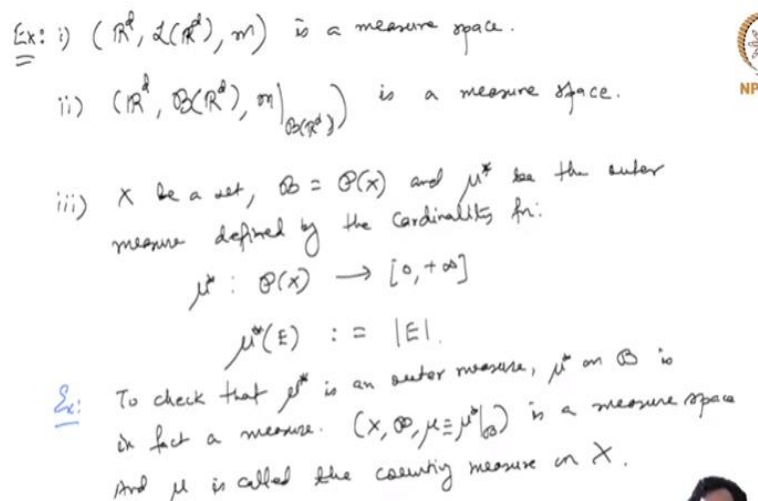 Ex: i) (ℝᵈ, ℒ(ℝᵈ), m) is a measure space.
ii) (ℝᵈ, ℬ(ℝᵈ), m|_ℬ(ℝᵈ)) is a measure space.
NP
iii) X be a set, ℬ = 𝒫(X) and μ* be the outer
measure defined by the cardinality fn:
μ* : 𝒫(X) → [0, +∞]
μ*(E) := |E|.
Ex: To check that μ* is an outer measure, μ* on ℬ is
in fact a measure. (X, ℬ, μ ≡ μ*|_ℬ) is a measure space
And μ is called the counting measure on X.